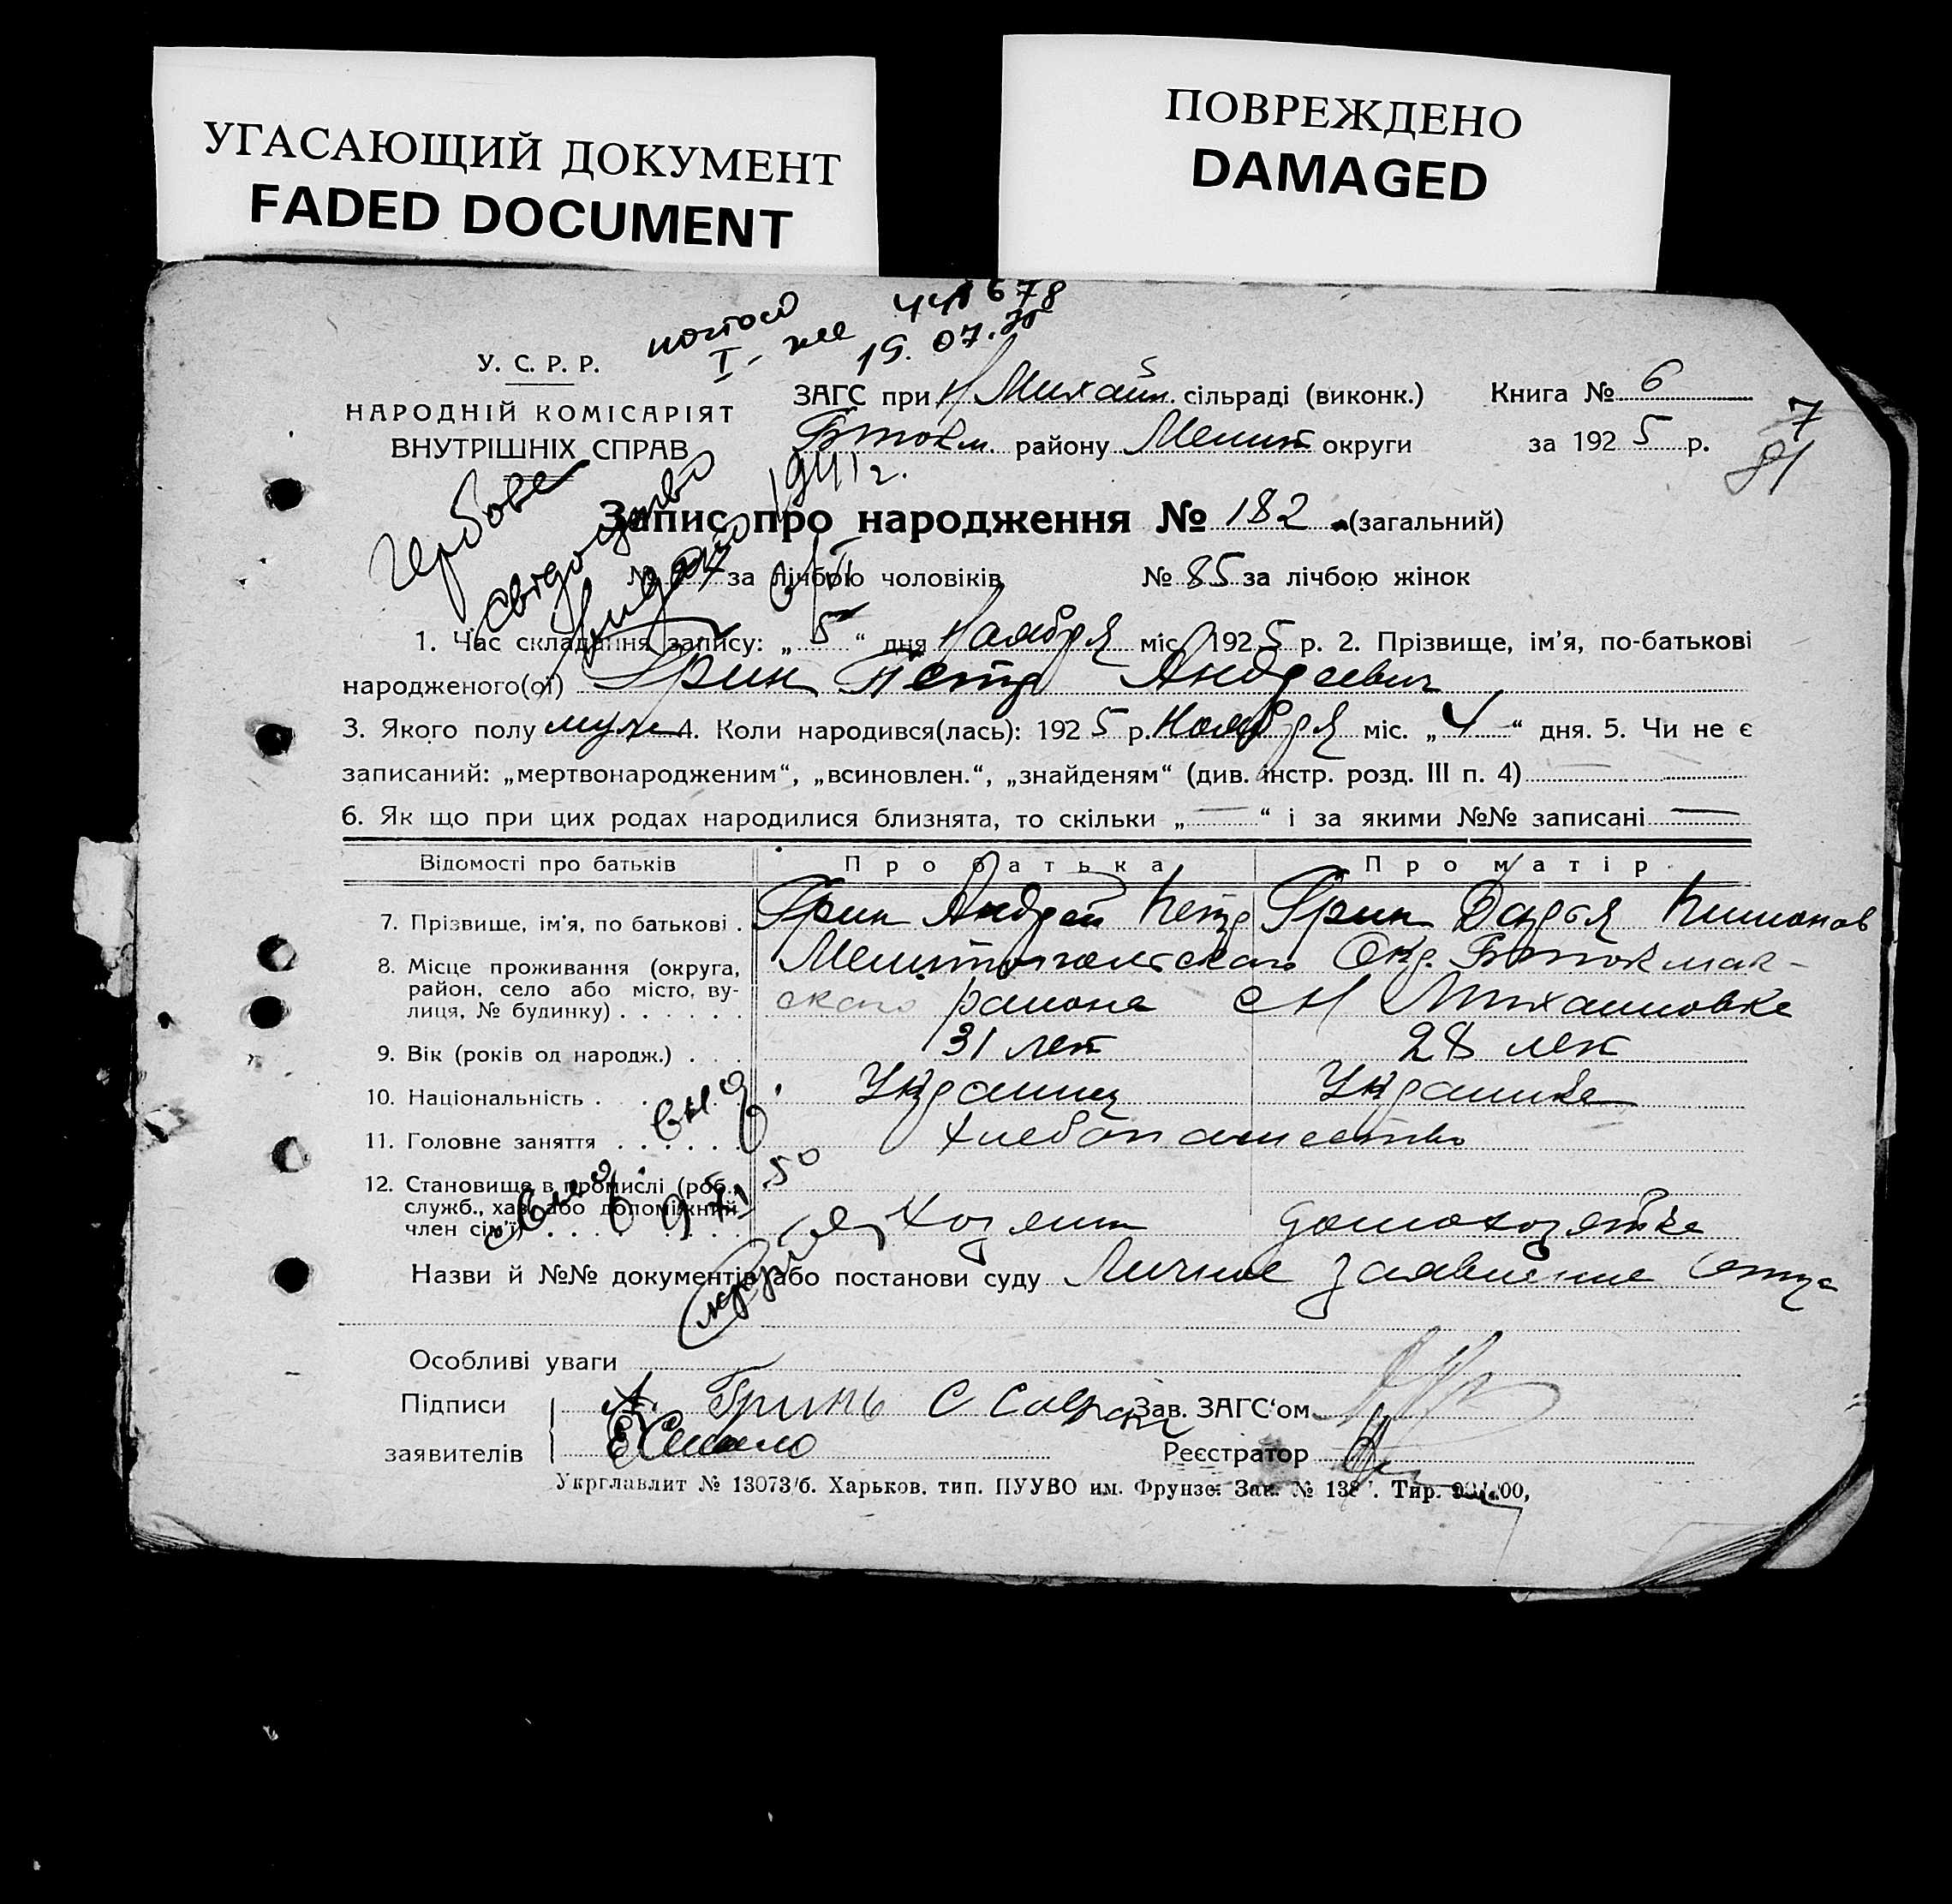 УГАСАЮЩИЙ ДОКУМЕНТ
FADED DOCUMENT
ПОВРЕЖДЕНО
DAMAGED
19. 07.
У. С. Р. Р.
НАРОДНІЙ КОМІСАРІЯТ
ВНУТРІШНІХ СПРАВ
ЗАГС при Н Михайл. сільраді (виконк.) Книга № 6
Бтокм. району Мелит округи за 1925 р.
7
81
Гербове
свідоцтво
видано 1941 г.
Запис про народження № 182 (загальний)
№ 97 за лічбою чоловіків № 85 за лічбою жінок
1. Час складання запису: „ 5 “ дня Ноября міс. 1925 р. 2. Прізвище, ім'я, по-батькові
народженого(ої) Грин Петр Андреевич
3. Якого полу муж 4. Коли народився(лась): 1925 р. Ноября міс. „ 4 “ дня. 5. Чи не є
записаний: „мертвонародженим“, „всиновлен.“, „знайденям“ (див. інстр. розд. III п. 4)
6. Як що при цих родах народилися близнята, то скільки „ — “ і за якими №№ записані —
Відомості про батьків Про батька Про матір
7. Прізвище, ім'я, по батькові . Грин Андрей Петр Грин Дарья
8. Місце проживання (округа, район, село або місто, вулиця, № будинку) . . . . . . Мелитопольского Окр. Бтокмак-
ского района с Н Михайловке
9. Вік (років од народж.) . . . 31 лет 28 лет
10. Національність . Украинец Украинка
11. Головне заняття . . . . . . хлебопашество
12. Становище в промислі (роб., служб., хаз. або допоміжний член сім'ї) . . . . Хозяин домохозяйка
Назви й №№ документів або постанови суду Личное заявление отца
Особливі уваги
Підписи А. Гринь С Зав. ЗАГС'ом
заявителів Реєстратор
Укрглавлит № 13073/б. Харьков. тип. ПУУВО им. Фрунзе. Зак. № 138